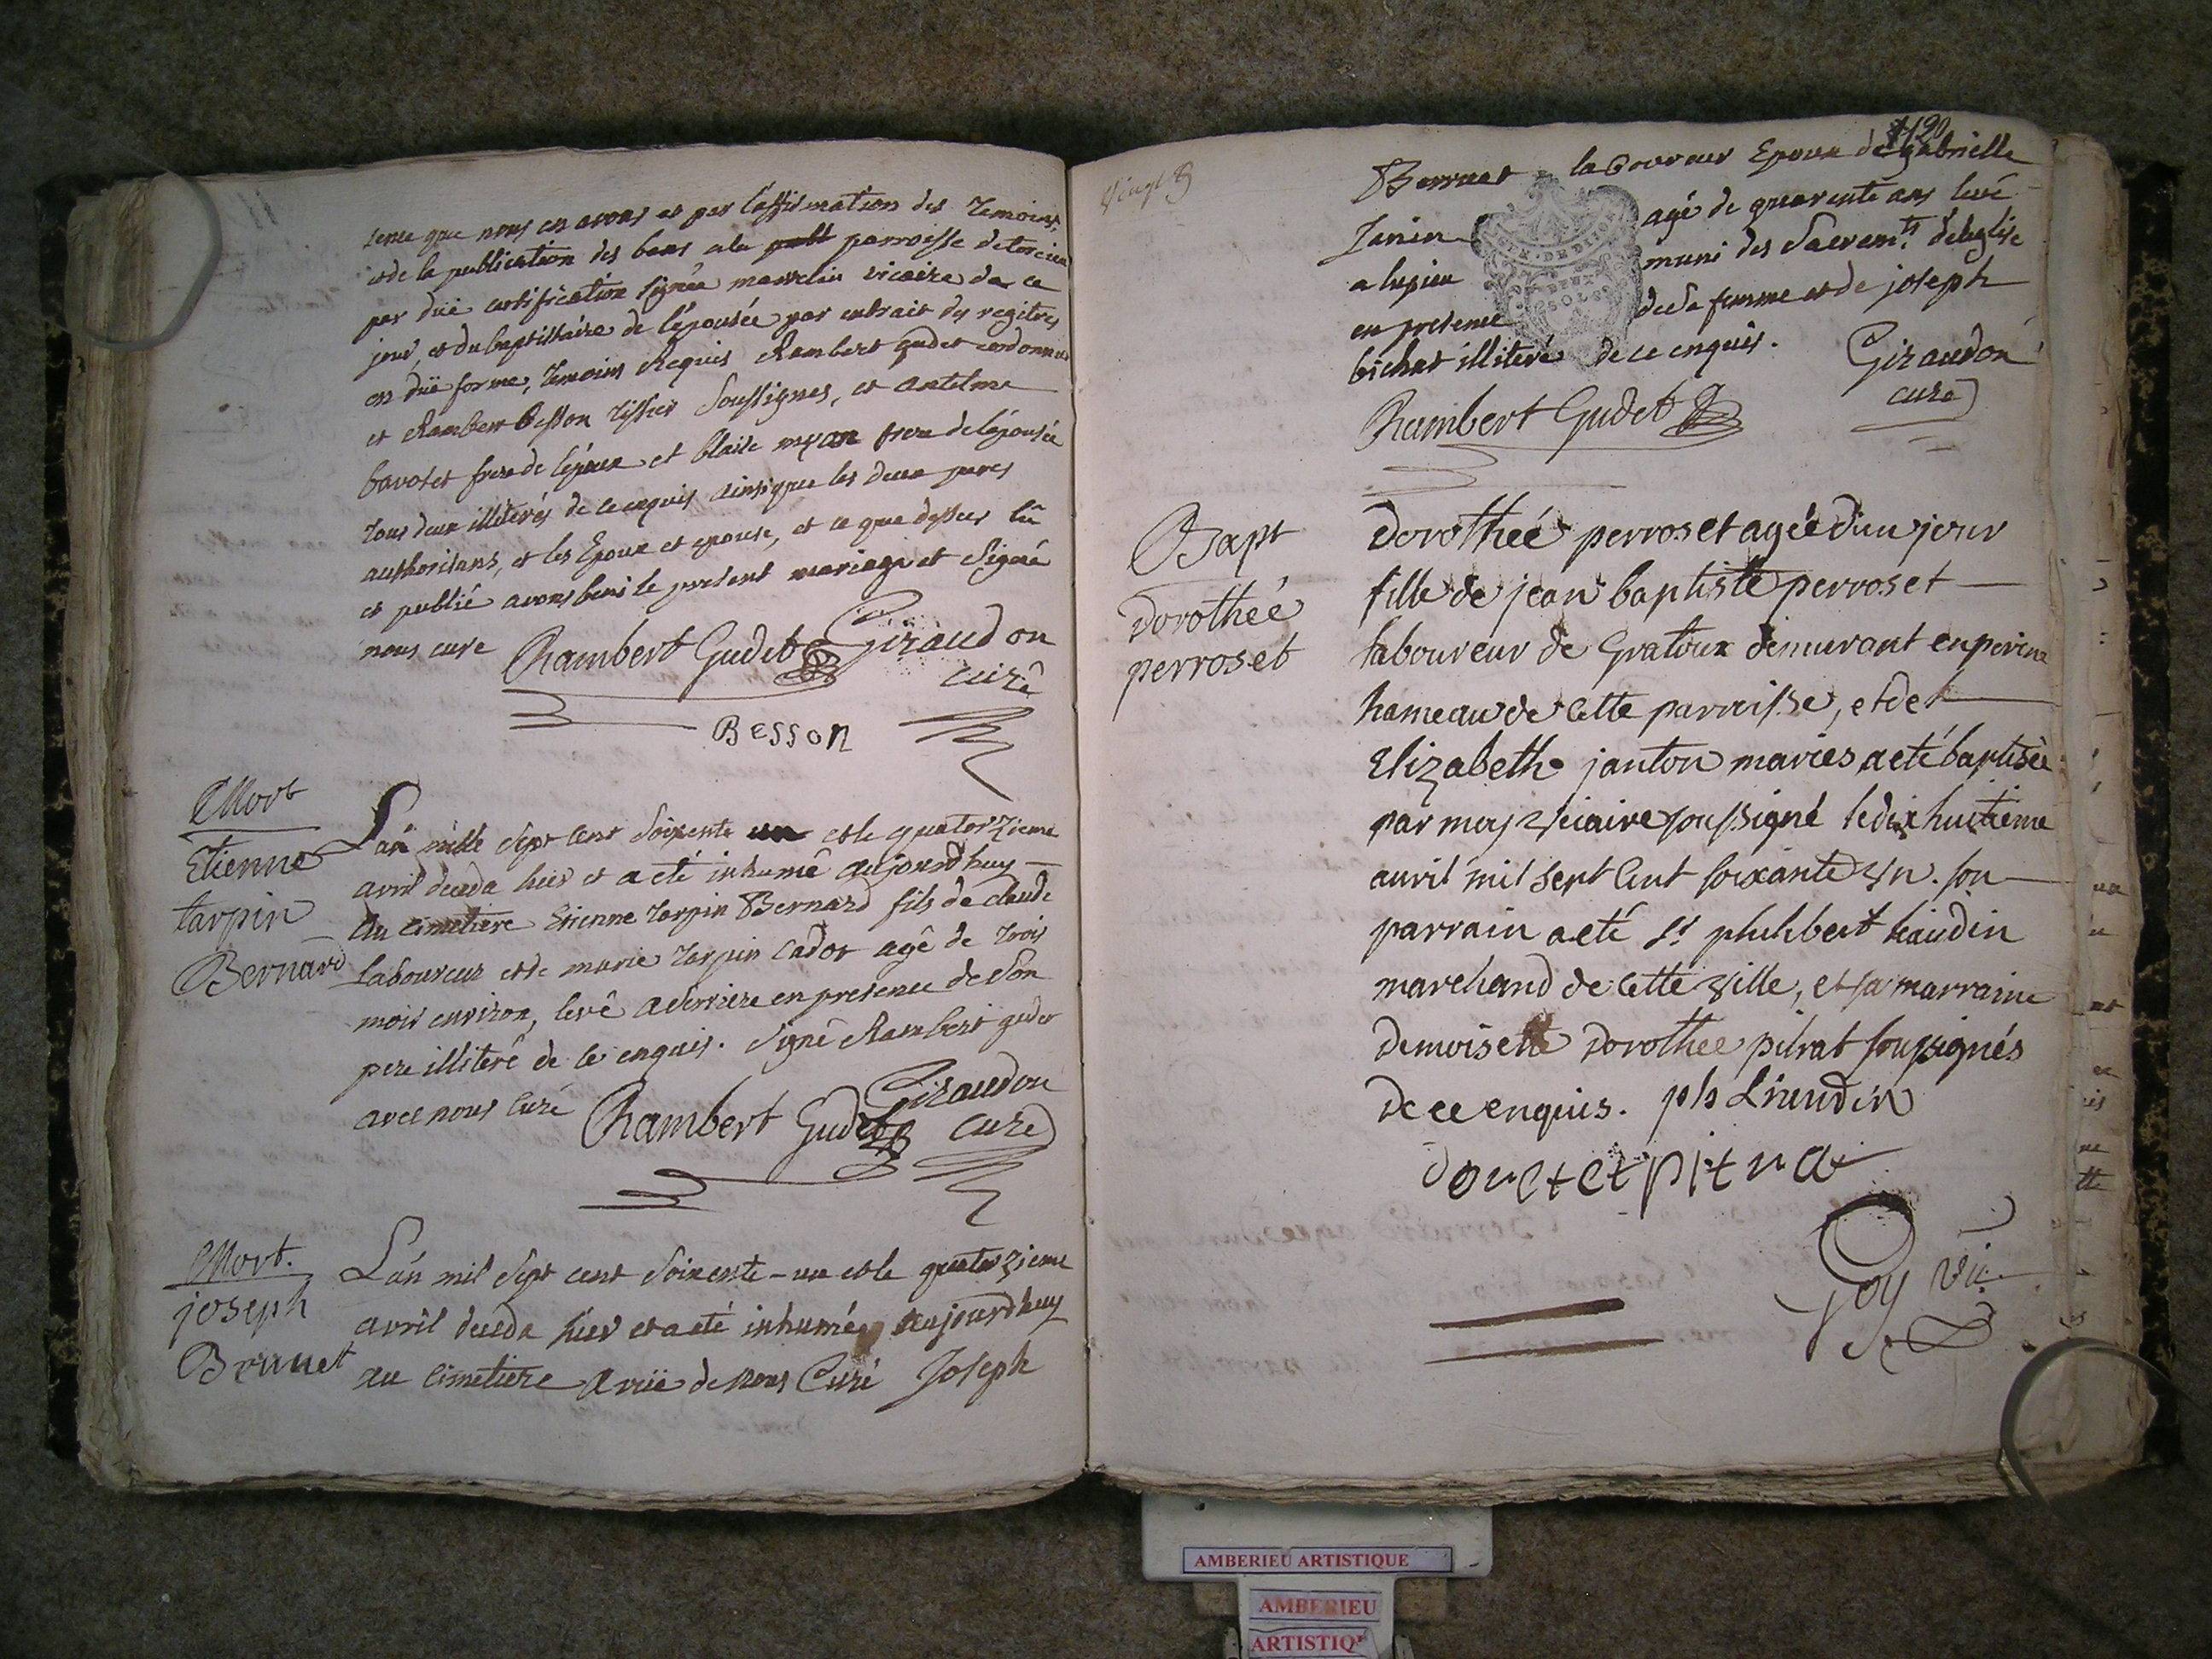 sence que nous en avons et par l'affirmation des temoins,
et de la publication des bans a la paroisse de torcieu
par düe certification signée marcelin vicaire de ce
jour, et du baptistaire de l'épousée par extrait des regitres
en düe forme, temoins Requis Rambert gudet cordonnier
et Rambert Besson tissier soussignes, et antelme
bavoset frere de l'époux et blaise frere de l'épousée
tous deux illiterés de ce enquis ainsi que les deux peres
authorisans, et les Epoux et epouse, et ce que dessus lû
et publié avons beni le present mariage et signé
nous curé Rambert Gudet Giraudon
curé
Besson
Mort
Etienne
tarpin
Bernard
L'an mille sept cent soixente un et le quatorzieme
avril deceda hier et a eté inhumé aujourdhuy
au cimetiere Etienne tarpin Bernard fils de claude
laboureur et de marie tarpin cador agé de trois
mois environ, levé a derriere en presence de son
pere illiteré de ce enquis. signé Rambert gudet
avec nous curé Rambert Gudet Giraudon
curé
Mort.
joseph
Brunet
L'an mil sept cent soixente-un et le quatorzieme
avril deceda hier et a eté inhumé aujourdhuy
au cimetiere a vüe de nous Curé Joseph
120
Brunet laboureur Epoux de gabrielle
Janin agé de quarente ans levé
a lupieu muni des Sacremts. de leglise
en presence de sa femme et de joseph
bichat illiteré de ce enquis. Giraudon
curé
Rambert Gudet
Bapt
dorothée
perroset
dorothée perroset agée d'un jour
fille de jean baptiste perroset
laboureur de Gratoux demurant en
hameau de cette parroisse, et de
Elizabeth janton mariés a eté baptisée
par moy viciaire soussigné le dix huitieme
avril mil sept cent soixante un. son
parrain a eté sr philibert liaudin
marchand de cette ville, et sa marraine
demoiselle dorothee pitrat soussignés
de ce enquis. ph Liaudin
Goy vic.
AMBERIEU ARTISTIQUE
AMBERIEU
ARTISTIQ